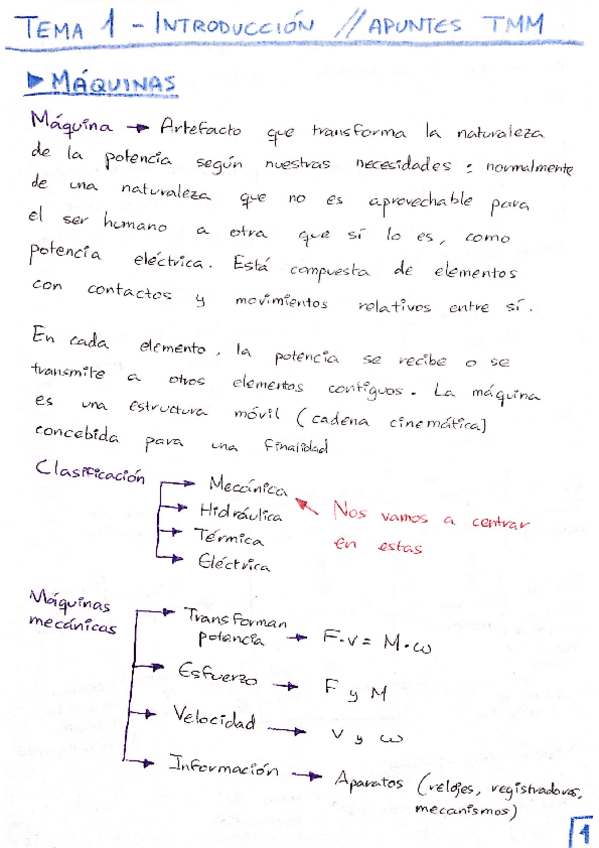 TEMA 1 - INTRODUCCIÓN // APUNTES TMM
► MÁQUINAS
Máquina → Artefacto que transforma la naturaleza
de la potencia según nuestras necesidades : normalmente
de una naturaleza que no es aprovechable para
el ser humano a otra que sí lo es, como
potencia eléctrica. Está compuesta de elementos
con contactos y movimientos relativos entre sí.
En cada elemento, la potencia se recibe o se
transmite a otros elementos contiguos. La máquina
es una estructura móvil (cadena cinemática)
concebida para una finalidad
Clasificación → Mecánica
→ Hidráulica
→ Térmica
→ Eléctrica
Nos vamos a centrar
en estas
Máquinas
mecánicas
→ Transforman
potencia → F·v = M·ω
→ Esfuerzo → F y M
→ Velocidad → v y ω
→ Información → Aparatos (relojes, registradoras,
mecanismos)
1